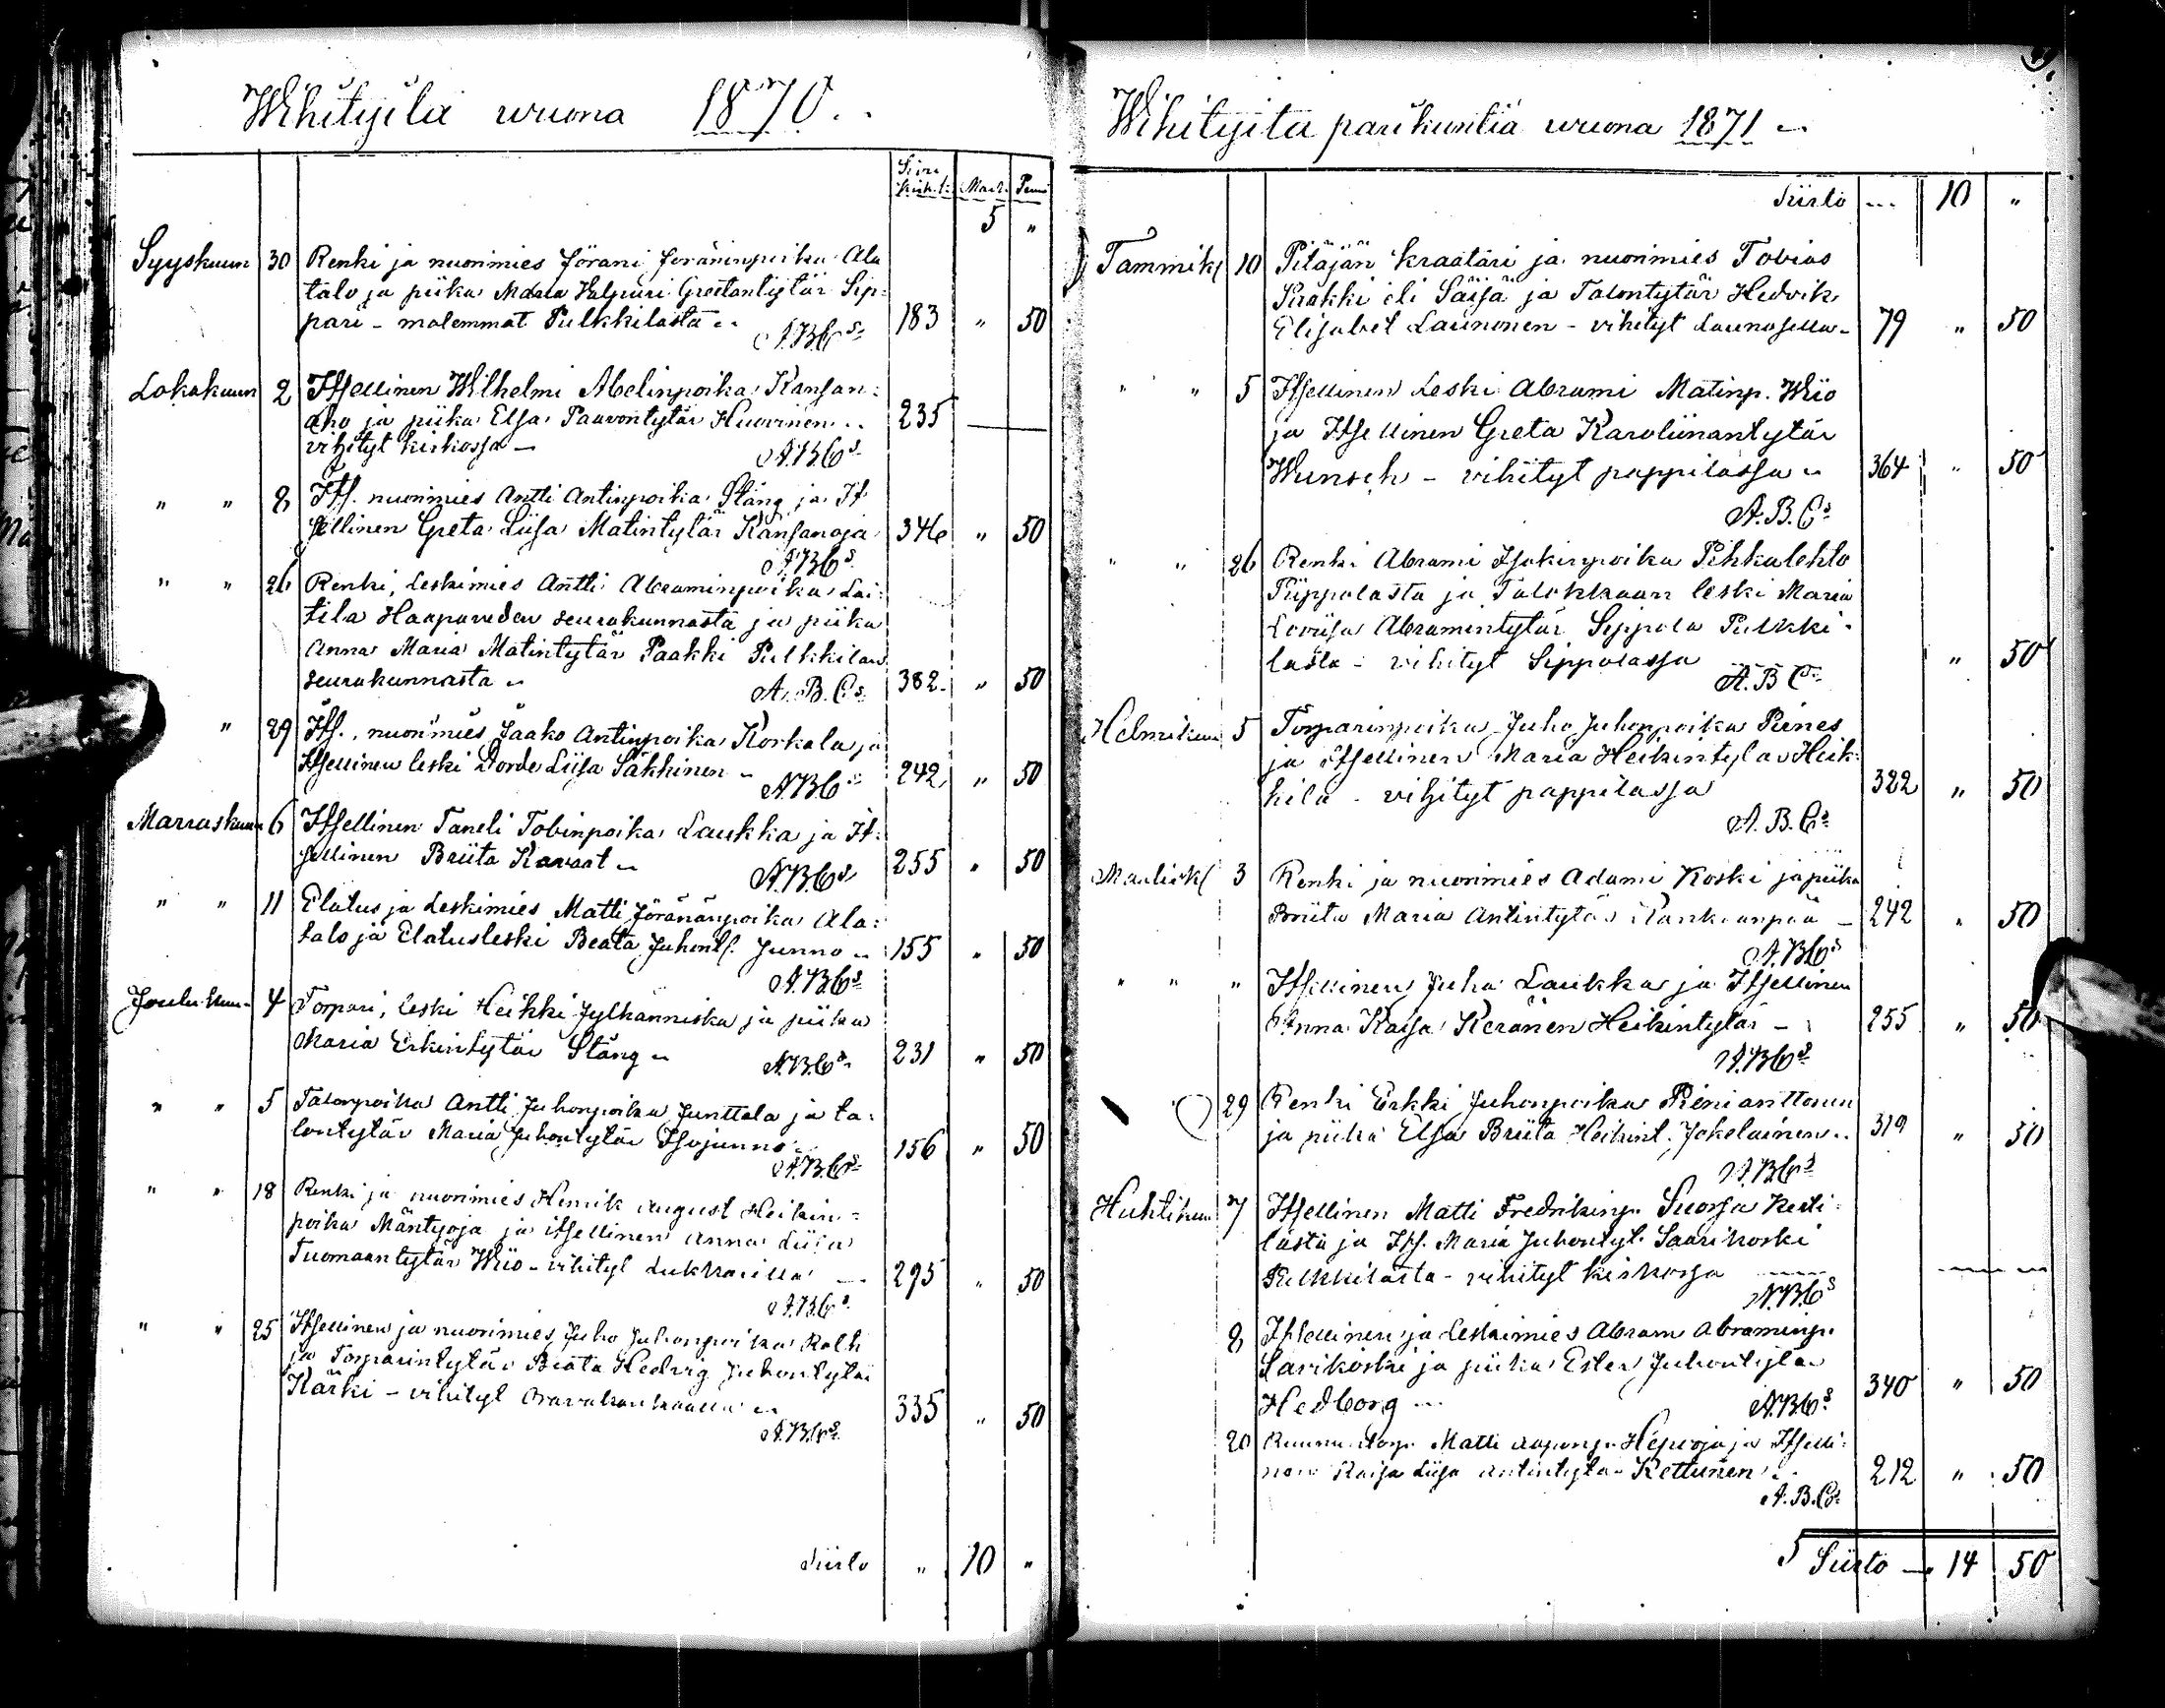 Wihityitä wuona 1870.
Siv: Mark: Penni
5 "
Syyskuun 30 Renki ja nuorimies Jörani Jöraninpoika Ala
talo ja piika Maria Valpuri Gretantytär Sip-
pari - molemmat Pulkkilasta .. 183 " 50
A.B.Cs
Lokakuun 2 Itsellinen Wilhelmi Abelinpoika Kansan-
aho ja piika Elsa Paavontytär Huovinen .. 235
vihityt kirkossa - A.B.Cs
" " 8 Its. nuorimies Antti Antinpoika Stång ja It-
sellinen Greta Liisa Matintytär Kansanoja 346 " 50
A.B.Cs
" " 26 Renki, Leskimies Antti Abraminpoika Lai-
tila Haapaveden seurakunnasta ja piika
Anna Maria Matintytär Paakki Pulkkilan
seurakunnasta .. A.B.Cs. 382 " 50
" 29 Its., nuorimies Jaako Antinpoika Korkala ja
Itsellinen leski Dorde Liisa Säkkinen - 242 " 50
A.B.Cs
Marraskuun 6 Itsellinen Taneli Tobinpoika Laukka ja It-
sellinen Briita Karvaat .. 255 " 50
A.B.Cs
" " 11 Elatus ja Leskimies Matti Jöränänpoika Ala-
talo ja Elatusleski Beata Juhont. Junno .. 155 " 50
A.B.Cs
Joulukuun 4 Torpari, leski Heikki Jylhänniska ja piika
Maria Erkintytär Stång .. A.B.Cs 231 " 50
" " 5 Talonpoika Antti Juhonpoika Junttala ja ta-
lontytär Maria Juhontytär Isojunno .. 156 " 50
A.B.Cs
" " 18 Renki ja nuorimies Henrik August Heikin-
poika Mäntyoja ja itsellinen Anna Liisa
Tuomaantytär Wiio - vihityt Lukkarilla 295 " 50
A.B.Cs
" " 25 Itsellinen ja nuorimies Juho Juhonpoika
ja Torparintytär Beata Hedvig Juhontytär
Kärki - vihityt 335 " 50
A.B.Cs
Siirto " 10 "
Wihityitä pariskuntia wuona 1871
Siirto 10 "
Tammik. 10 Pitäjän kraatari ja nuorimies Tobias
eli Säisä ja Talontytär Hedvik
Elisabet Launonen - vihityt Launosella - 79 " 50
" " 5 Itsellinen Leski Abrami Matinp. Wiio
ja Itsellinen Greta Karoliinantytär
Wunsch - vihityt pappilassa .. 364 " 50
A.B.Cs
" " 26 Renki Abrami Isakinpoika Pihkalehto
Piippolasta ja Talokkaan leski Maria
Loviisa Abramintytär Sippola Pulkki-
lasta - vihityt Sippolassa " 50
A.B.Cs
Helmikuun 5 Torparinpoika Juho Juhonpoika Pines
ja itsellinen Maria Heikintytär Heik-
kilä - vihityt pappilassa 322 " 50
A.B.Cs
Maalisk. 3 Renki ja nuorimies Adami Koski ja piika
Briita Maria Antintytär Kankaanpää - 242 " 50
A.B.Cs
" " " Itsellinen Juho Laukka ja Itsellinen
Anna Kaisa Keränen Heikintytär - 255 " 50
A.B.Cs
" 29 Renki Erkki Juhonpoika Pirinianttonen
ja piika Elsa Briita Heikint. Jokelainen .. 319 " 50
A.B.Cs
Huhtikuun 7 Itsellinen Matti Fredrikinp. Suorsa Kesti-
lästä ja Its. Maria Juhontyt. Saarikoski
Pulkkilasta - vihityt kirkossa
A.B.Cs
8 Itsellinen ja Leskimies Abram Abraminp.
Sarikoski ja piika Ester Juhontytär
Hedborg A.B.Cs 340 " 50
20 Matti Hepooja ja Itselli-
nen Kaisa Liisa Antintytär Kettunen .. 212 " 50
A.B.Cs
Siirto 14 50